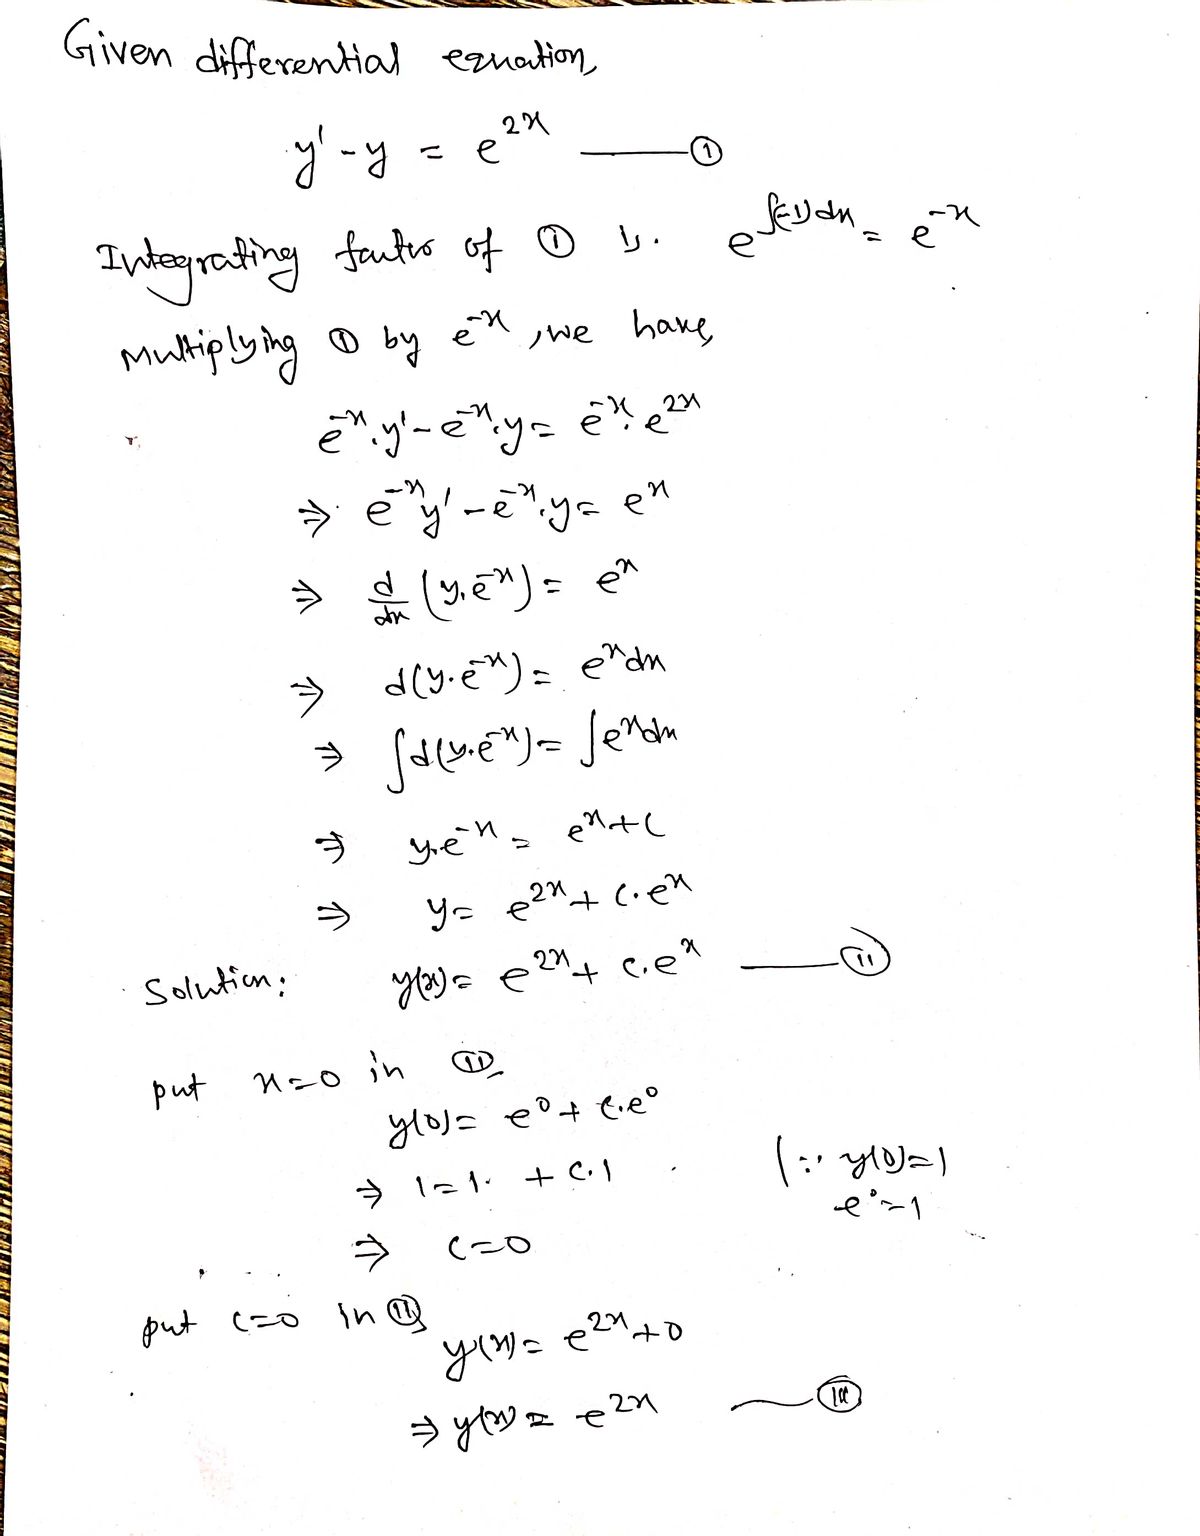 Given differential equation,
y' - y = e^{2x} —— ①
Integrating factor of ① is. e^{∫(-1)dx} = e^{-x}
Multiplying ① by e^{-x}, we have,
e^{-x}.y' - e^{-x}.y = e^{-x}. e^{2x}
⇒ e^{-x}y' - e^{-x}.y = e^x
⇒ d/dx (y.e^{-x}) = e^x
⇒ d(y.e^{-x}) = e^x dx
⇒ ∫d(y.e^{-x}) = ∫e^x dx
⇒ y.e^{-x} = e^x + c
⇒ y = e^{2x} + c.e^x
Solution: y(x) = e^{2x} + c.e^x —— ⑪
put x=0 in ⑪,
y(0) = e^0 + c.e^0
⇒ 1 = 1. + c.1 (∵ y(0)=1
e^0=1
⇒ c=0
put c=0 in ⑪,
y(x) = e^{2x} + 0
⇒ y(x) = e^{2x} —— (III)